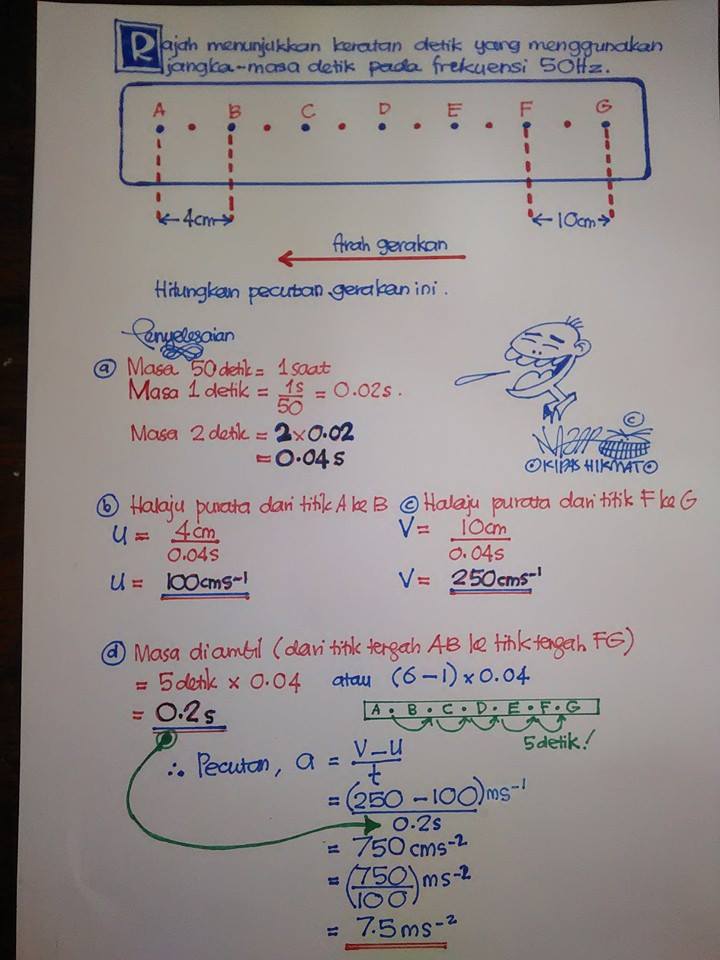 Rajah menunjukkan keratan detik yang menggunakan
jangka-masa detik pada frekuensi 50Hz.
A B C D E F G
4cm 10cm
Arah gerakan
Hitungkan pecutan gerakan ini.
Penyelesaian
(a) Masa 50 detik = 1 saat
Masa 1 detik = 1s/50 = 0.02s.
Masa 2 detik = 2×0.02
= 0.04s
©
OKIPAS HIKMATO
(b) Halaju purata dari titik A ke B
u = 4cm/0.04s
u = 100cms⁻¹
(c) Halaju purata dari titik F ke G
V = 10cm/0.04s
V = 250cms⁻¹
(d) Masa diambil (dari titik tengah AB ke titik tengah FG)
= 5 detik × 0.04 atau (6-1)×0.04
= 0.2s
A • B • C • D • E • F • G
5 detik!
∴ Pecutan, a = V-u/t
= (250-100)ms⁻¹/0.2s
= 750cms⁻²
= (750/100)ms⁻²
= 7.5ms⁻²